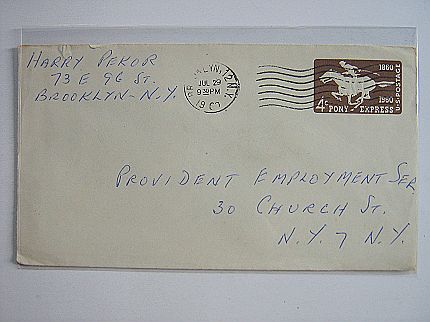 HARRY PEKOR
73 E 96 ST.
BROOKLYN - N.Y.
BROOKLYN, 12 N.Y.
JUL 29
9 30 PM
1960
1860
1960
U.S. POSTAGE
4¢ PONY EXPRESS
PROVIDENT EMPLOYMENT SER
30 CHURCH ST.
N.Y. 7 N.Y.